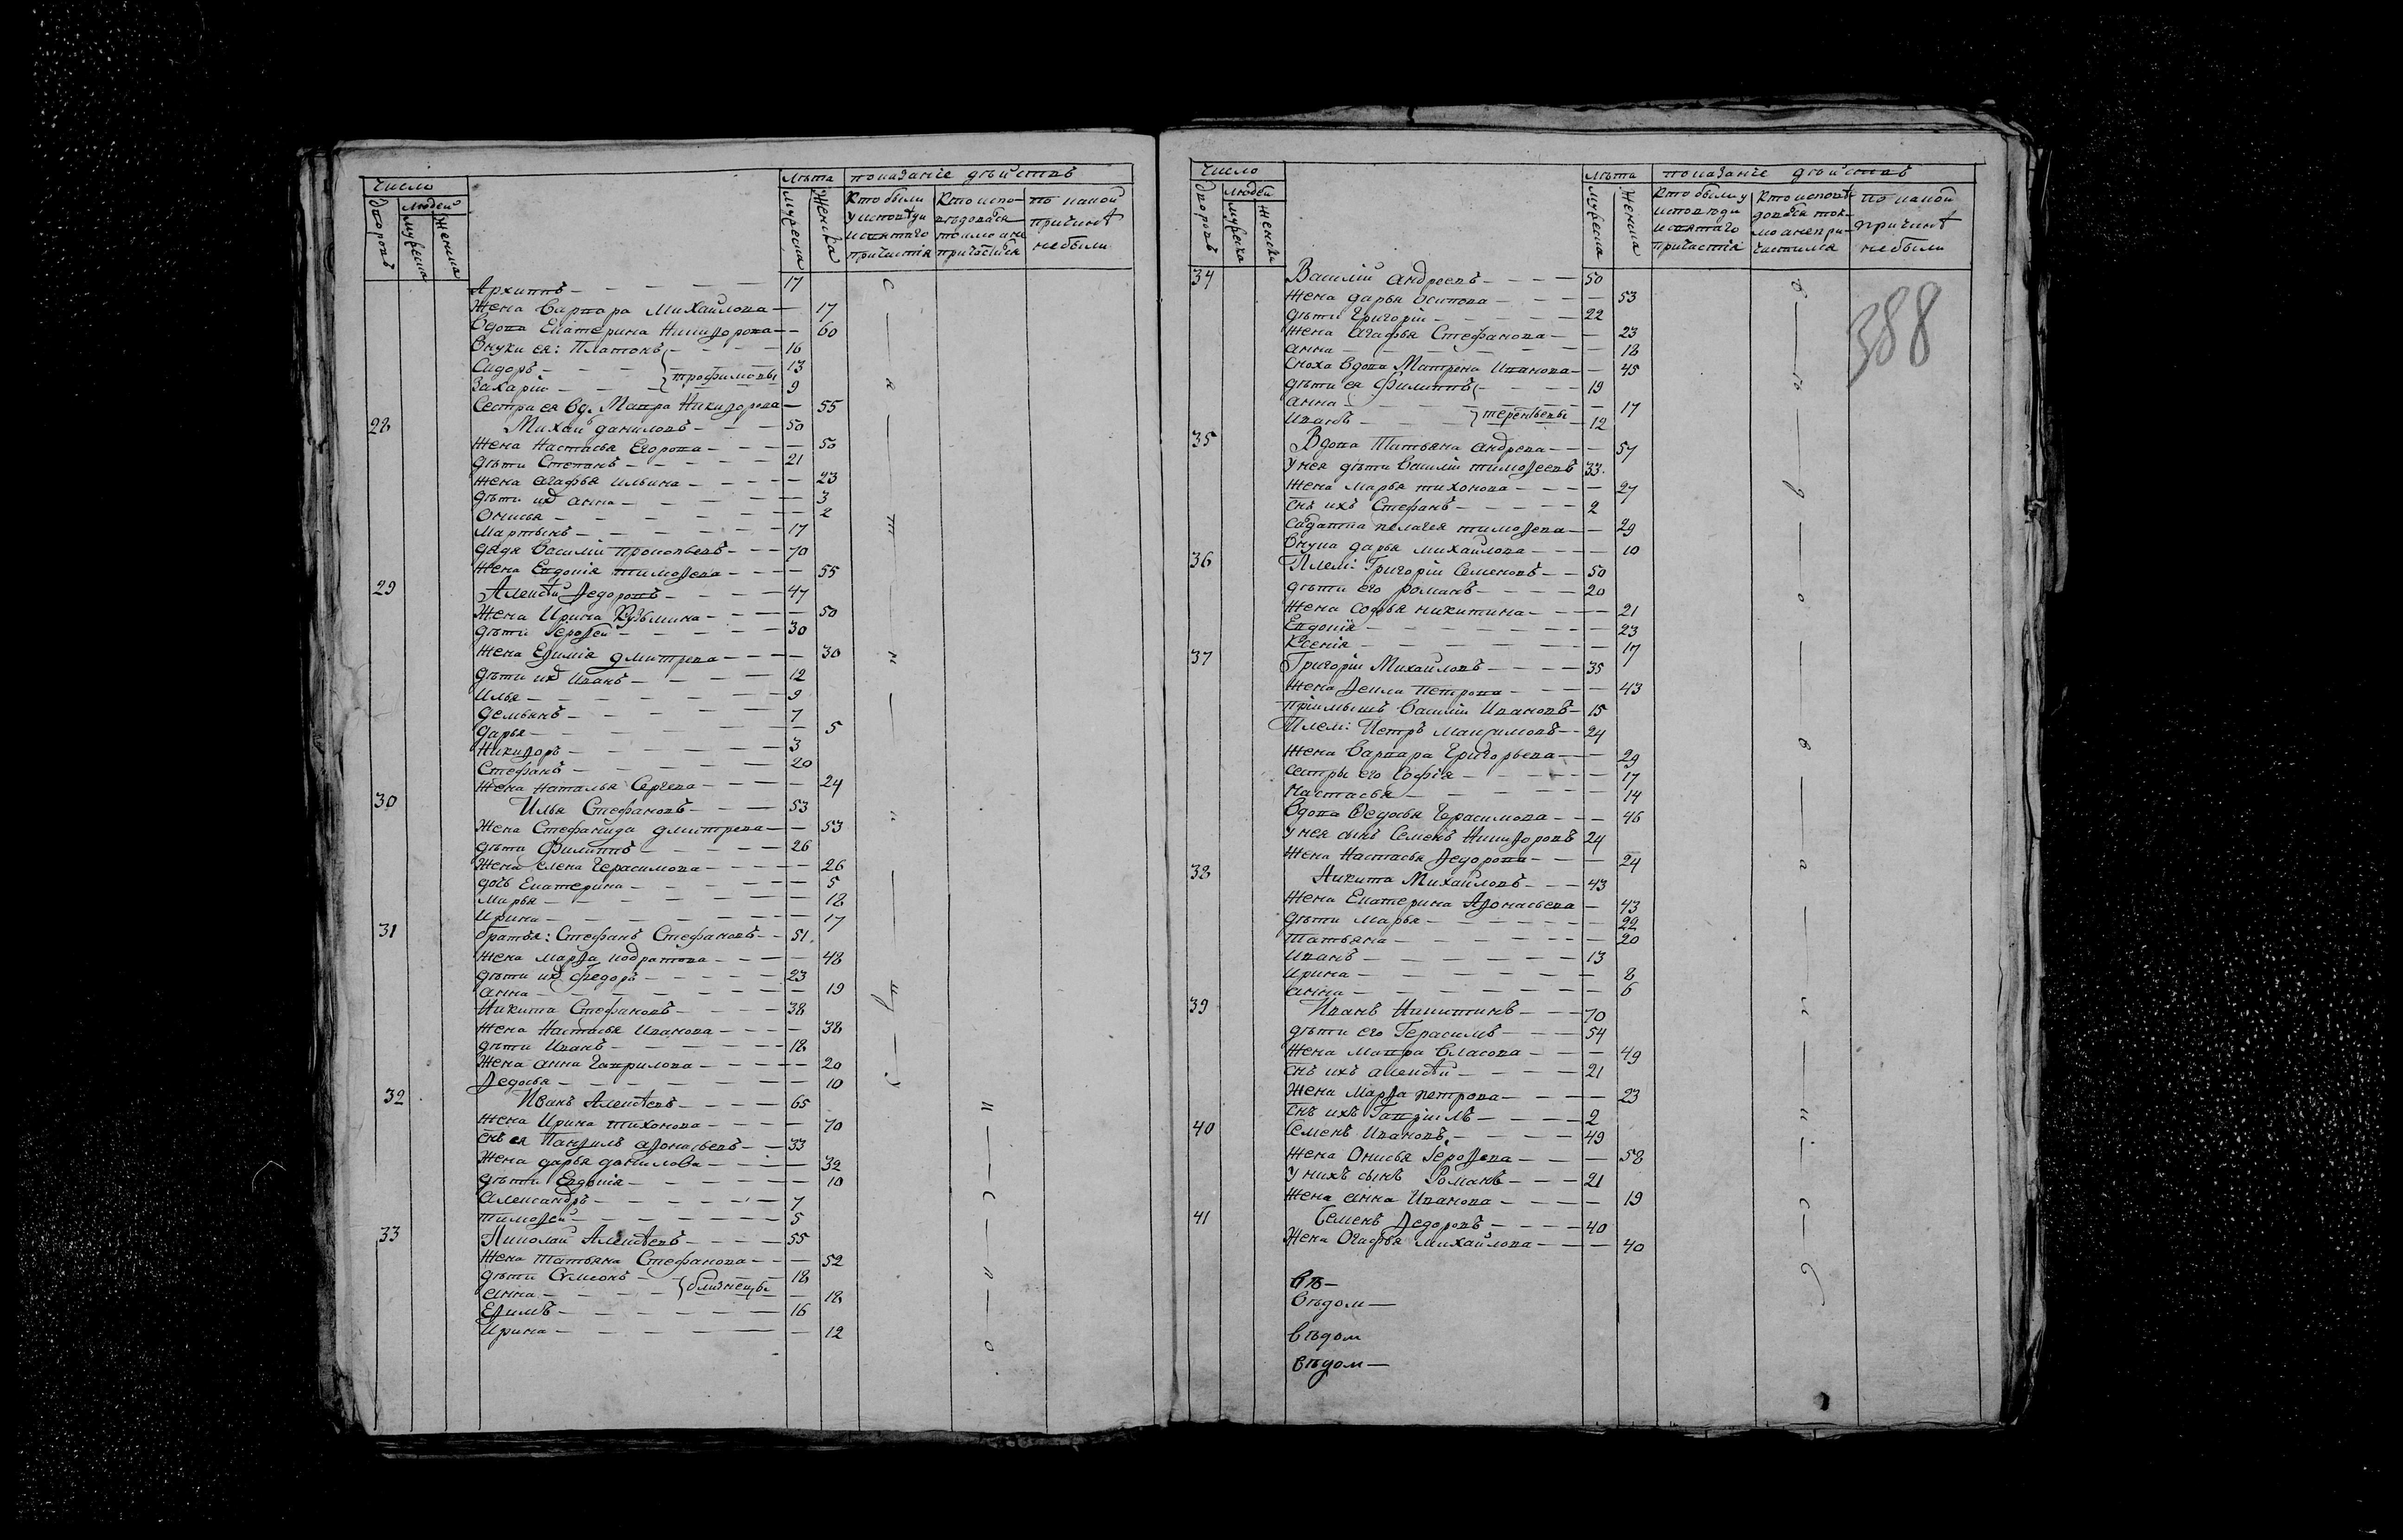 Число
Лѣта показаніе дѣйствъ
дворовъ
людей
мужеска
женска
мужеска
женска
Кто были у исповѣди и святаго причастія
Кто исповѣдовался токмо а не причастился
по какой причинѣ не были
Архипъ — 17
Жена Варвара Михайлова — 17
Вдова Екатерина Никиѳорова — 60
Внуки ея: Платонъ — 16
Сидоръ — 13
Захаріи — трофимовы 9
Сестра ея вд. Мавра Никиѳорова — 55
28 Михаи даниловъ — 50
Жена Настасья Егорова — 50
дѣти Степанъ — 21
Жена агафья ильина — 23
дѣти их анна — 3
Онисья — 2
Мартынъ — 17
дядя Василій прокопьевъ — 70
Жена Евдокія тимоѳева — 55
29 Алексѣй Ѳедоровъ — 47
Жена Ирина Кузьмина — 50
дѣти Героѳей — 30
Жена Еѳимія дмитрева — 30
дѣти их Иванъ — 12
Илья — 9
демьянъ — 7
дарья — 5
Никиѳоръ — 3
Стефанъ — 20
Жена Наталья Сергева — 24
30 Илья Стефановъ — 53
Жена Стефанида дмитрева — 53
дѣти Филиппъ — 26
Жена елена Герасимова — 26
дочь Екатерина — 5
Марья — 18
Ирина — 17
31 братья: Стефанъ Стефановъ — 51
Жена марѳа кодратова — 48
дѣти их Федоръ — 23
анна — 19
Никита Стефановъ — 38
Жена Настасья Иванова — 38
дѣти Иванъ — 18
Жена анна Гаврилова — 20
Ѳедосья — 10
32 Иванъ Алексѣевъ — 65
Жена Ирина тихонова — 70
снъ ея Панѳилъ аѳонасьевъ — 33
Жена дарья данилова — 32
дѣти Евдокія — 10
Александръ — 7
тимоѳей — 5
33 Николай Алексѣевъ — 55
Жена татьяна Стефанова — 52
дѣти Симеонъ — близнецы 18
анна — 18
Еѳимъ — 16
Ирина — 12
Число
Лѣта показаніе дѣйствъ
дворовъ
людей
мужеска
женска
мужеска
женска
Кто были у исповѣди и святаго причастія
Кто исповѣдовался токмо а не причастился
по какой причинѣ не были
388
34 Василій андреевъ — 50
Жена дарья Осипова — 53
дѣти Григоріи — 22
Жена агафья Стефанова — 23
анна — 18
Сноха вдова Матрена Иванова — 45
дѣти ея Филиппъ — 19
анна — 17
Иванъ — терентьевы 12
35 Вдова Татьяна андрева — 57
У нея дѣти Василіи тимоѳеевъ 33
Жена марья тихонова — 27
снъ ихъ Стефанъ — 2
Салдатка пелагея тимоѳева — 29
Внука дарья михайлова — 10
36 Плем: Григоріи Семеновъ — 50
дѣти его романъ — 20
Жена софья никитина — 21
Евдокія — 23
Ксенія — 17
37 Григоріи Михайловъ — 35
Жена Ѳекла Петрова — 43
пріимышъ Василіи Ивановъ — 15
Плем: Петръ Максимовъ — 24
Жена Варвара Григорьева — 29
сестры его Софія — 17
Настасья — 14
Вдова Ѳедосья Герасимова — 46
У нея сынъ Семенъ Никиѳоровъ 24
Жена Настасья Ѳедорова — 24
38 Никита Михайловъ — 43
Жена Екатерина Аѳонасьева — 43
дѣти марья — 22
Татьяна — 20
Иванъ — 13
Ирина — 8
анна — 6
39 Иванъ Никитинъ — 70
дѣти его Герасимъ — 54
Жена мавра Власова — 49
снъ ихъ алексѣй — 21
Жена Марѳа петрова — 23
снъ ихъ Гавріилъ — 2
40 Семенъ Ивановъ — 49
Жена Онисья Героѳева — 58
У нихъ сынъ Романъ — 21
Жена анна Иванова — 19
41 Семенъ Ѳедоровъ — 40
Жена Огафья михайлова — 40
Вѣ —
Вѣдом —
Вѣдом
Вѣдом —